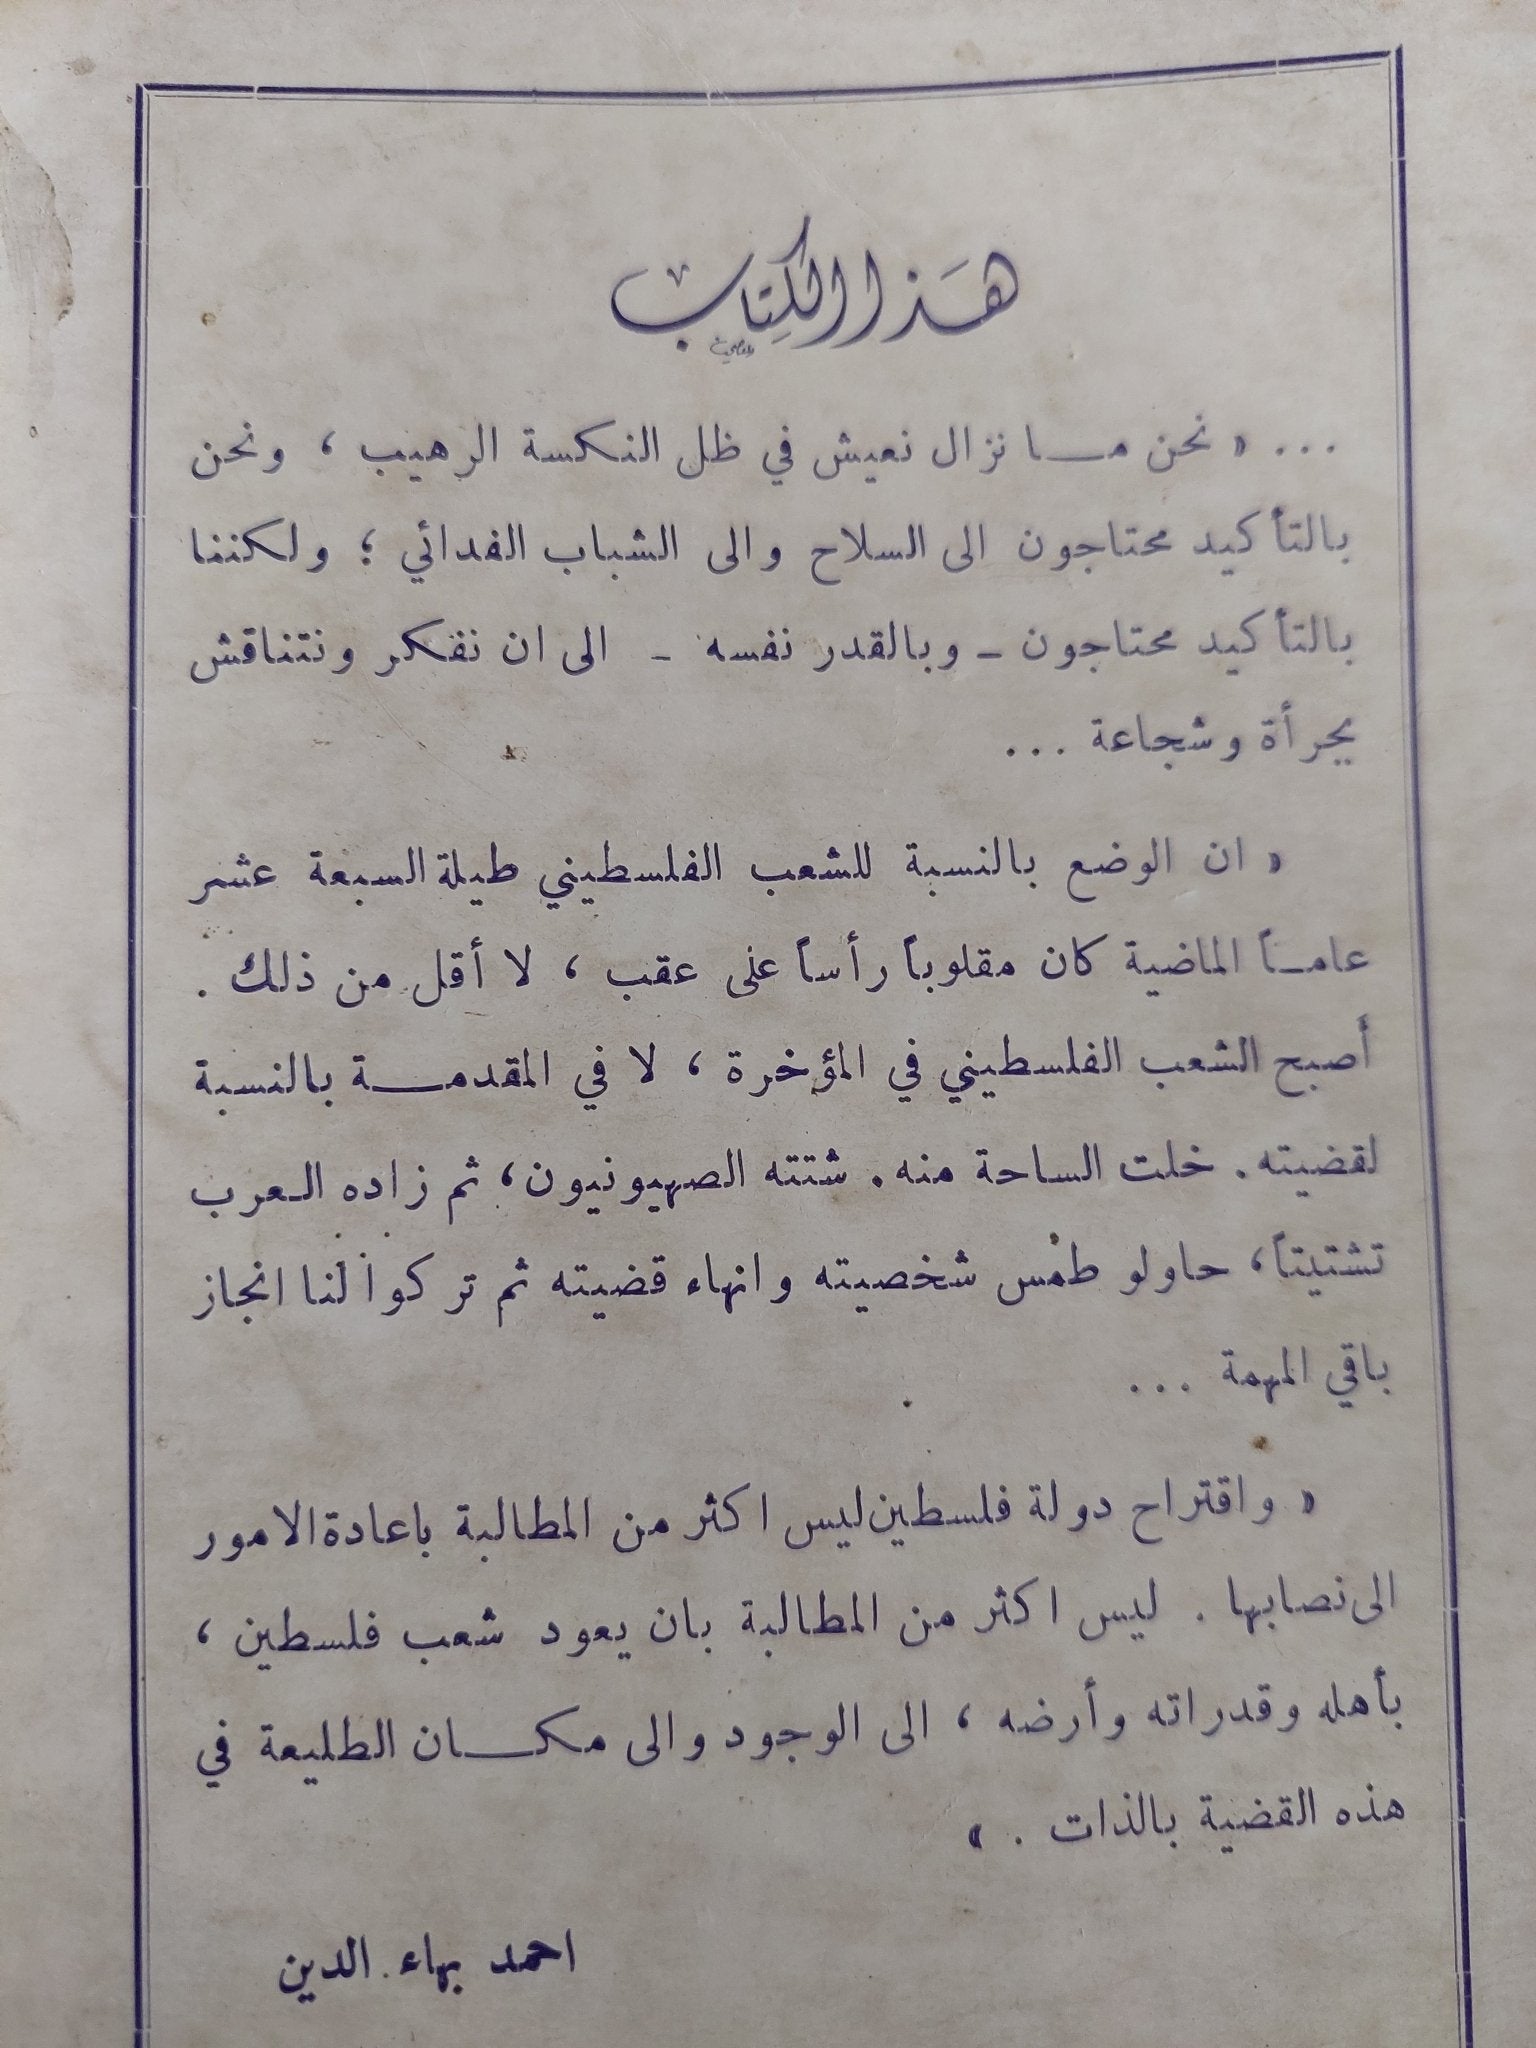 هَذا الكِتاب
... « نحن مـــا نزال نعيش في ظل النكسة الرهيب ، ونحن
بالتأكيد محتاجون الى السلاح والى الشباب الفدائي ؛ ولكننا
بالتأكيد محتاجون ـ وبالقدر نفسه ـ الى ان نفكر ونتناقش
بجرأة وشجاعة ...
« ان الوضع بالنسبة للشعب الفلسطيني طيلة السبعة عشر
عامـاً الماضية كان مقلوباً رأساً على عقب ، لا أقل من ذلك .
أصبح الشعب الفلسطيني في المؤخرة ، لا في المقدمـــة بالنسبة
لقضيته . خلت الساحة منه . شتته الصهيونيون ، ثم زاده العرب
تشتيتاً ، حاولو طمس شخصيته وانهاء قضيته ثم تركوا لنا انجاز
باقي المهمة ...
« واقتراح دولة فلسطين ليس اكثر من المطالبة باعادة الامور
الى نصابها . ليس اكثر من المطالبة بان يعود شعب فلسطين ،
بأهله وقدراته وأرضه ، الى الوجود والى مكـــان الطليعة في
هذه القضية بالذات . »
احمد بهاء الدين